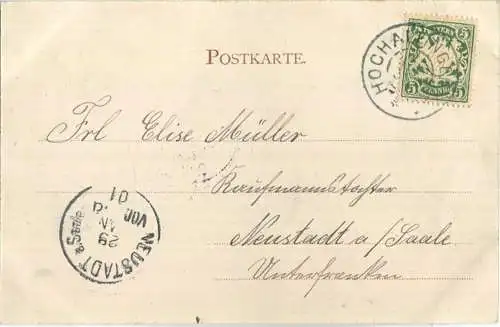 POSTKARTE.
5 5
PFENNIG
Frl Elise Müller
Kaufmannstochter
Neustadt a/Saale
Unterfranken
NEUSTADT a.Saale
29
VOR
01